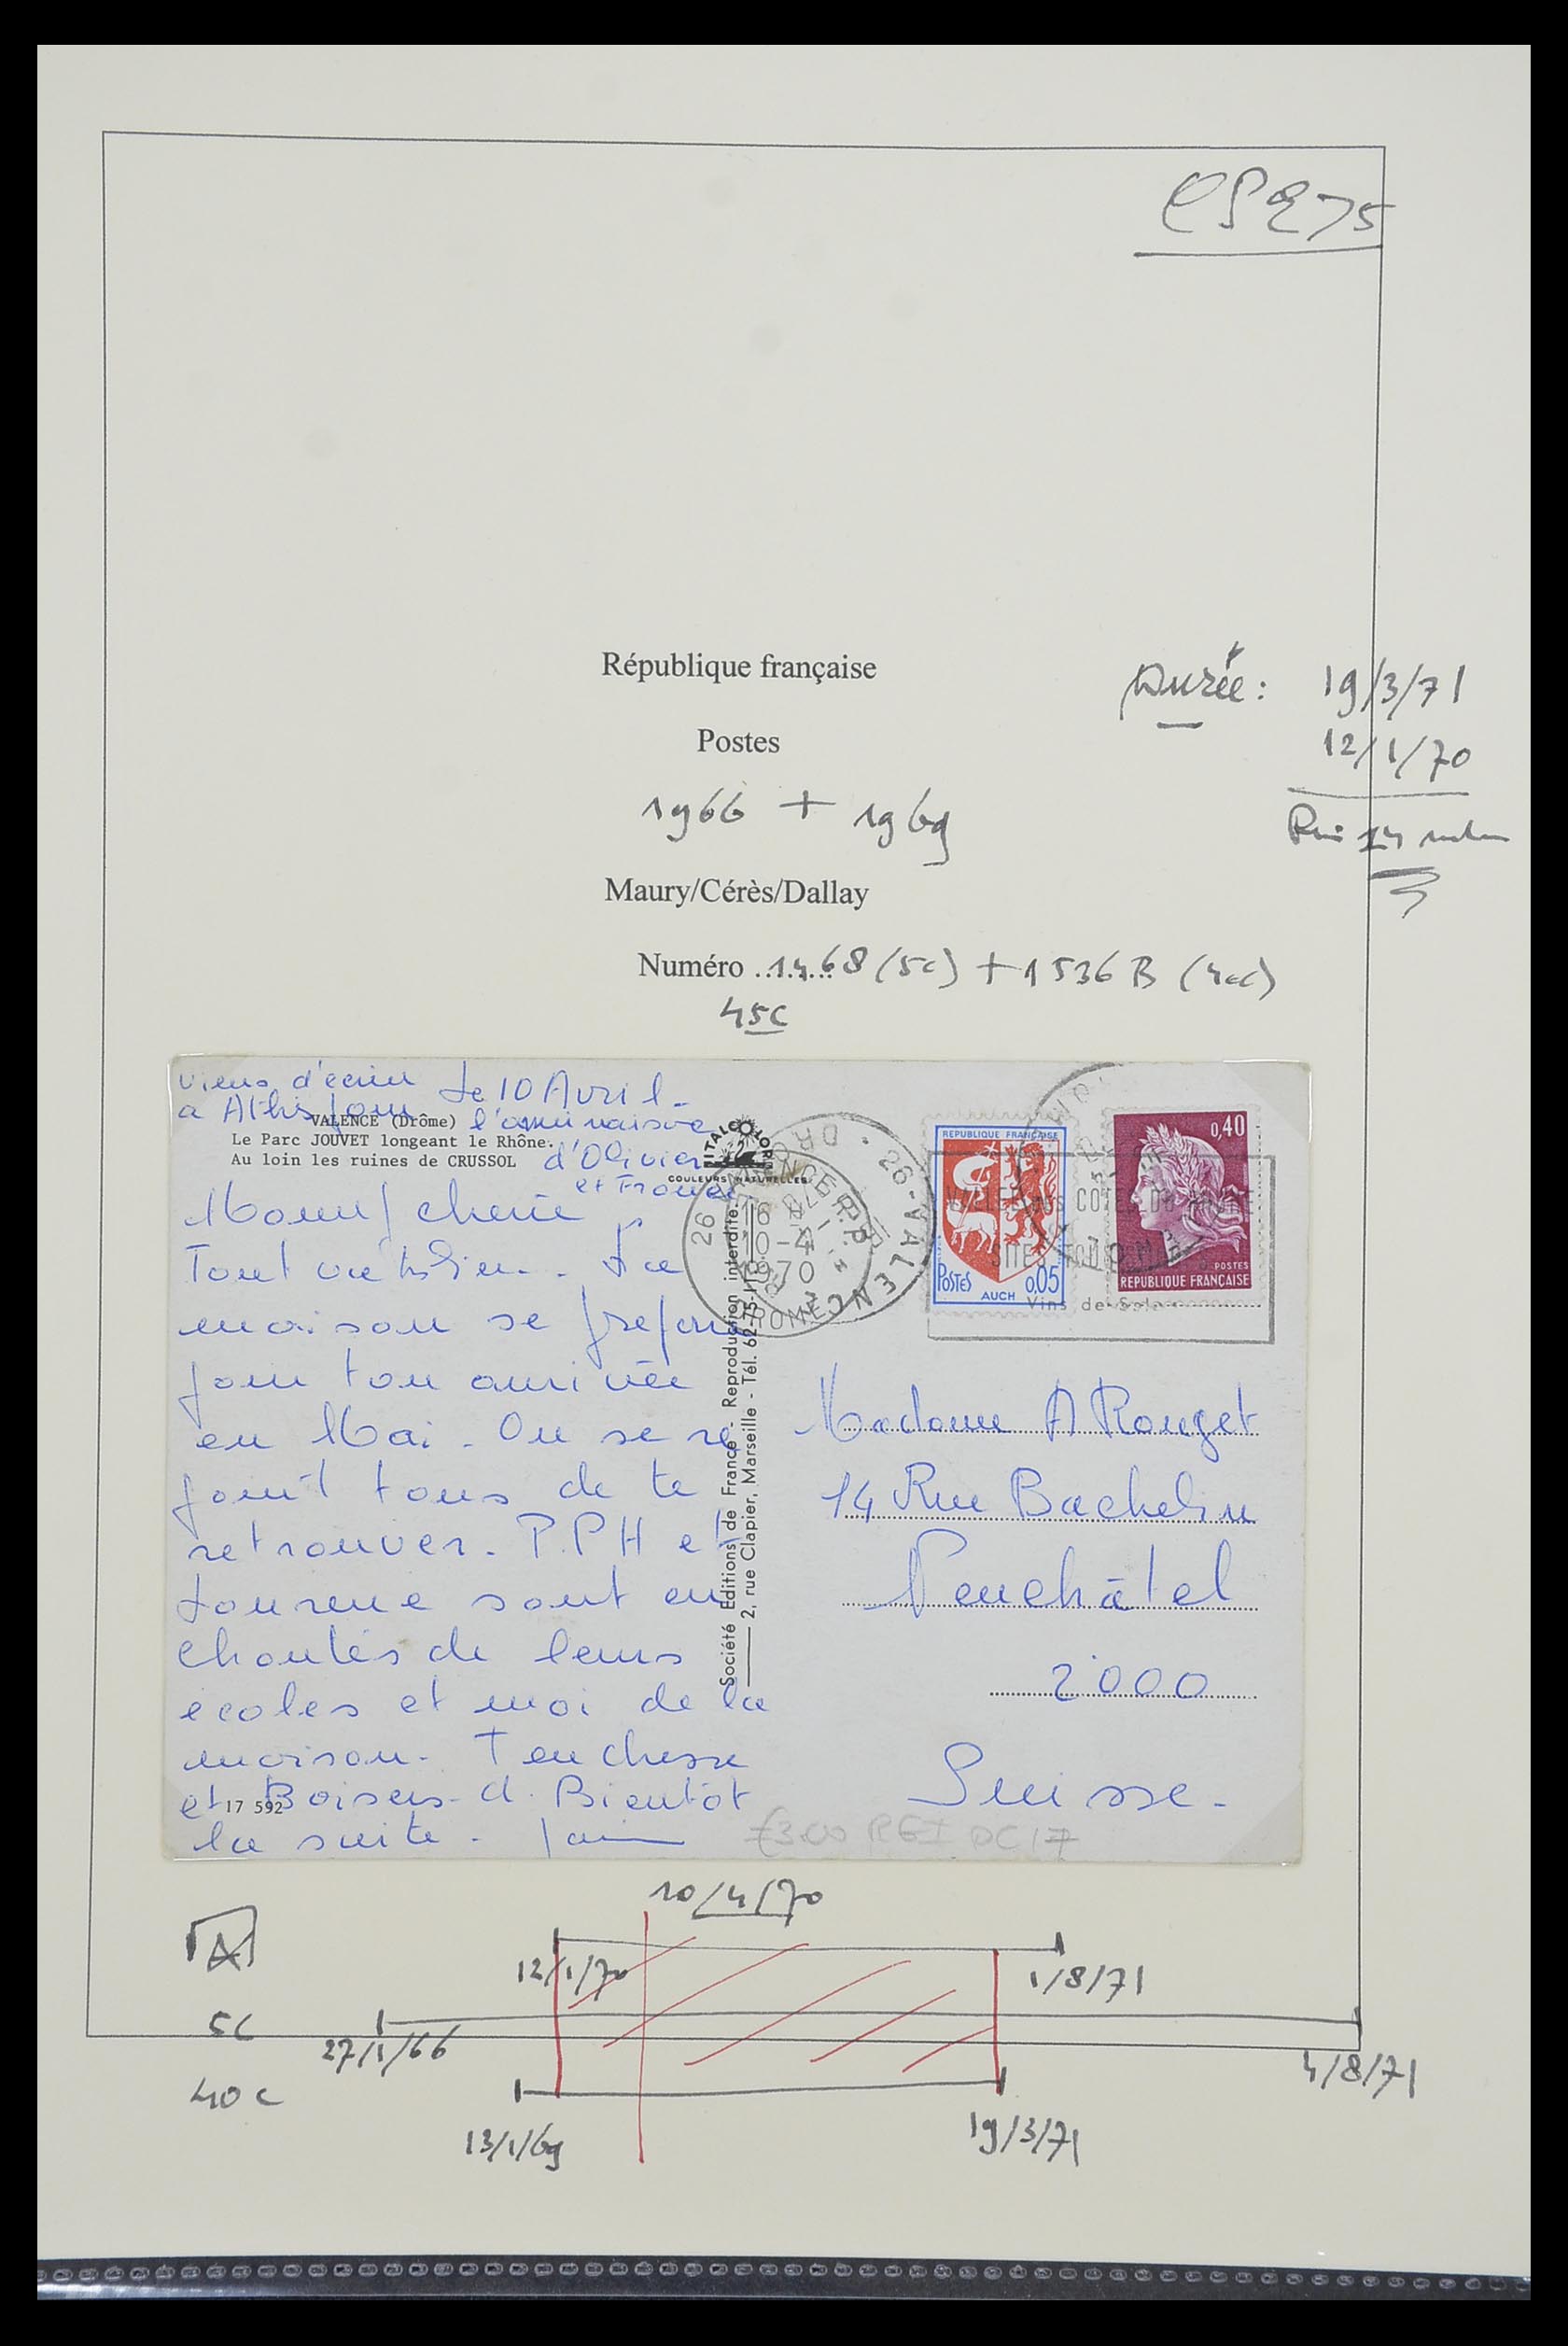 CPE75
République française
Durée : 19/3/71
Postes
12/1/70
1966 + 1969
14
Maury/Cérès/Dallay
Numéro ..1468 (5c) + 1536B (40c)
45c
viens d'écrire
à Athis pour
Le 10 Avril -
l'anniversaire
d'Olivier
et
VALENCE (Drôme)
Le Parc JOUVET longeant le Rhône.
Au loin les ruines de CRUSSOL
ITALCOLOR
COULEURS NATURELLES
Mamy chérie
Tout va bien. La
maison se prépare
pour ton arrivée
en Mai. On se ré
jouit tous de te
retrouver. P.PH et
sont en
chantés de leurs
écoles et moi de la
maison. Tendresse
et Baisers. à Bientôt
la suite.
17 592
Société Editions de France - Reproduction interdite.
2, rue Clapier, Marseille - Tél. 62-75-11
26 VALENCE R.P.
18 H
10-4
1970
DROME
26-VALENCE
DROME
REPUBLIQUE FRANÇAISE
POSTES
AUCH 0,05
0,40
POSTES
REPUBLIQUE FRANÇAISE
COTES DU RHONE
SITES TOURISME
Vins de Soleil
Madame A Rouget
14 Rue Bachelin
Neuchâtel
2000
Suisse.
£3.00 DC17
10/4/70
A
12/1/70
1/8/71
5c
27/1/66
4/8/71
40c
13/1/69
19/3/71